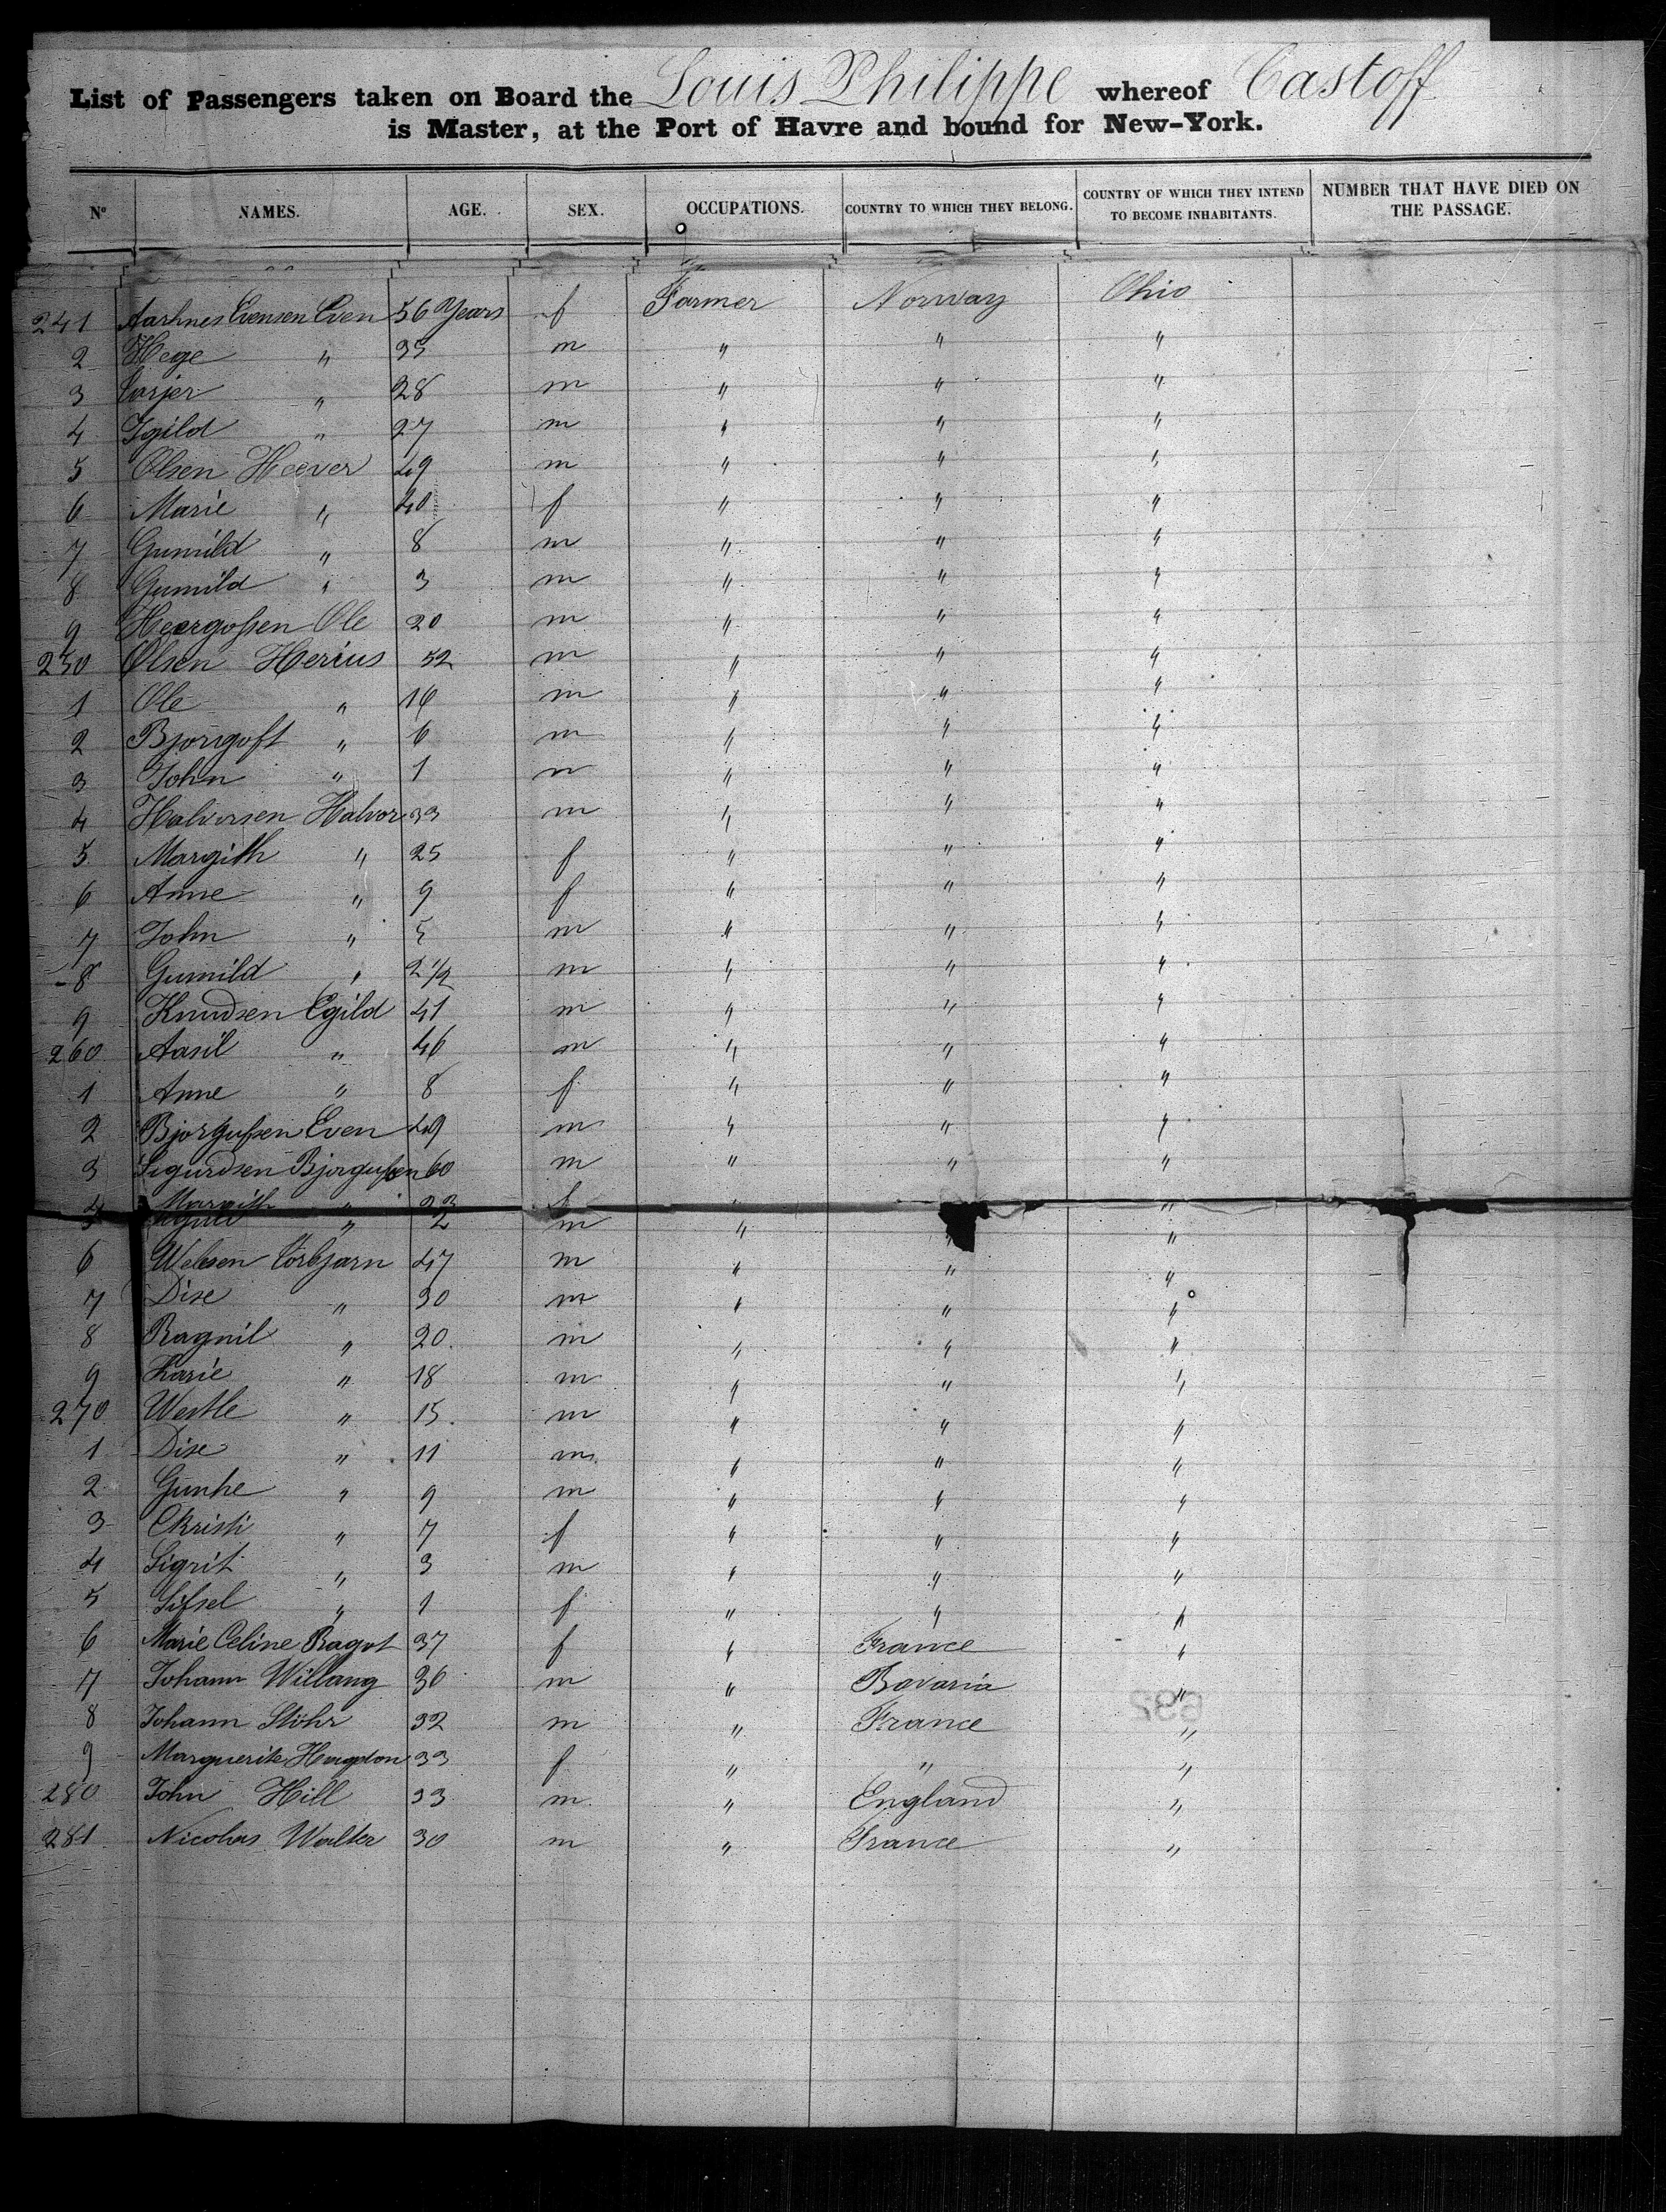 List of Passengers taken on Board the Louis Philippe whereof Castoff
is Master, at the Port of Havre and bound for New-York.
No NAMES. AGE. SEX. OCCUPATIONS. COUNTRY TO WHICH THEY BELONG. COUNTRY OF WHICH THEY INTEND TO BECOME INHABITANTS. NUMBER THAT HAVE DIED ON THE PASSAGE.
241 Aashnes Evensen Even 56 Years f Farmer Norway Ohio
2 Hege " 35 m " " "
3 Torjer " 28 m " " "
4 Igild " 27 m " " "
5 Olsen Heever 49 m " " "
6 Marie " 40 f " " "
7 Gumild " 8 m " " "
8 Gumild " 3 m " " "
9 Heergoſsen Ole 20 m " " "
250 Olsen Herius 52 m " " "
1 Ole " 16 m " " "
2 Bjorigoft " 6 m " " "
3 John " 1 m " " "
4 Halvorsen Halvor 33 m " " "
5 Margith " 25 f " " "
6 Anne " 9 f " " "
7 John " 5 m " " "
8 Gumild " 2 1/2 m " " "
9 Knudsen Egild 41 m " " "
260 Aasil " 46 m " " "
1 Anne " 8 f " " "
2 Bjorguſsen Even 49 m " " "
3 Sigurdsen Bjorguſsen 60 m " " "
4 Margith " 23 f " "
5 " 2 m " " "
6 Welesen Torbjarn 47 m " " "
7 Dise " 30 m " " "
8 Ragnil " 20 m " " "
9 Karie " 18 m " " "
270 Westle " 15 m " " "
1 Dise " 11 m " " "
2 Gunhe " 9 m " " "
3 Christi " 7 f " " "
4 Sigrit " 3 m " " "
5 Siſsel " 1 f " " "
6 Marie Celine Ragot 37 f " France "
7 Johann Willang 36 m " Bavaria "
8 Johann Stöhr 32 m " France "
9 Marguerite Hagdon 33 f " " "
280 John Hill 33 m " England "
281 Nicolas Walter 30 m " France "